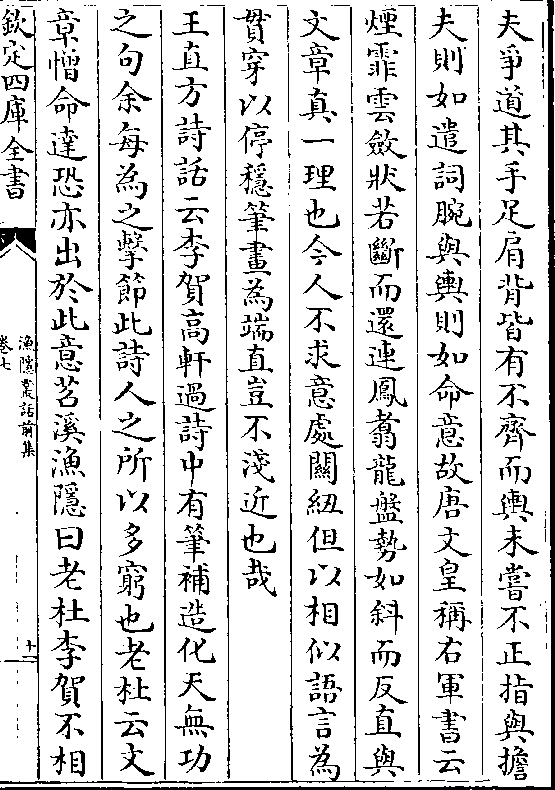 夫爭道其手足肩背皆有不齊而輿未嘗不正指與擔
夫則如遣詞腕與輿則如命意故唐文皇稱右軍書云
煙霏雲斂狀若斷而還連鳳翥龍盤勢如斜而反直與
文章真一理也今人不求意處關紐但以相似語言為
貫穿以停穩筆畫為端直豈不淺近也哉
王直方詩話云李賀高軒過詩中有筆補造化天無功
之句余每為之擊節此詩人之所以多窮也老杜云文
章憎命達恐亦出於此意苕溪漁隱曰老杜李賀不相
欽定四庫全書
漁隱叢話前集
卷七
十一